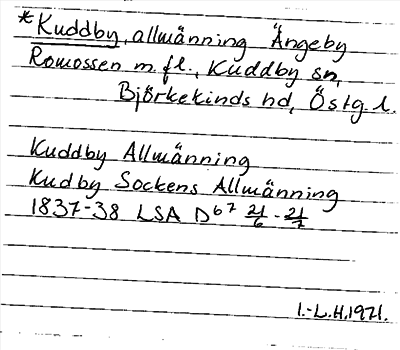 *Kuddby, allmänning Ängeby
Romossen m.fl., Kuddby sn,
Björkekinds hd, Östg.l.
Kuddby Allmänning
Kudby Sockens Allmänning
1837-38 LSA D67 21/6 - 21/7
I.-L.H.1971.